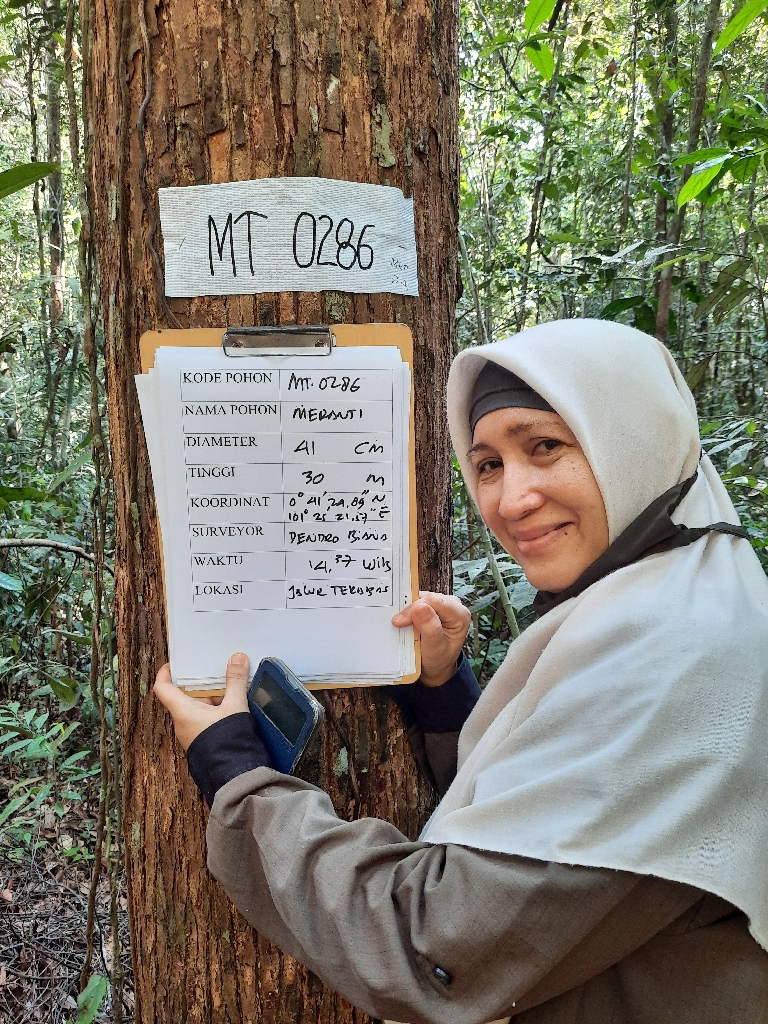 MT 0286
KODE POHON MT. 0286
NAMA POHON MERANTI
DIAMETER 41 CM
TINGGI 30 M
KOORDINAT 0° 41' 24,89" N
101° 25' 21,57" E
SURVEYOR DENDRO BISNIS
WAKTU 14.37 Wib
LOKASI JALUR TERABAS